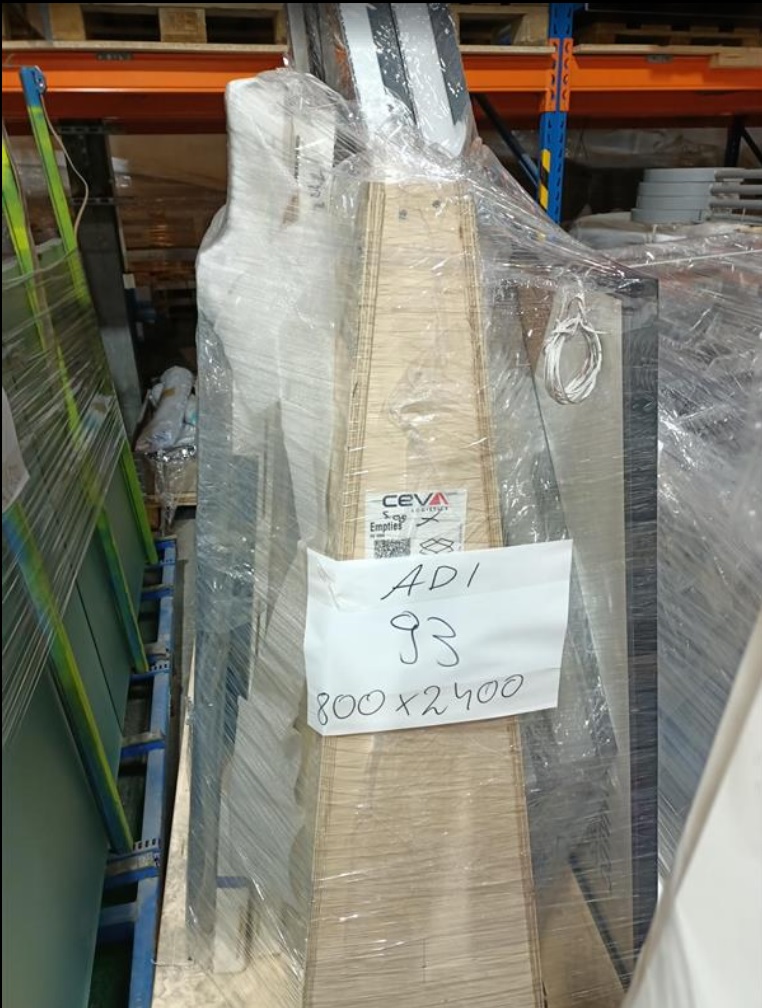 CEVA
LOGISTICS
Empties
ADI
93
800x2400